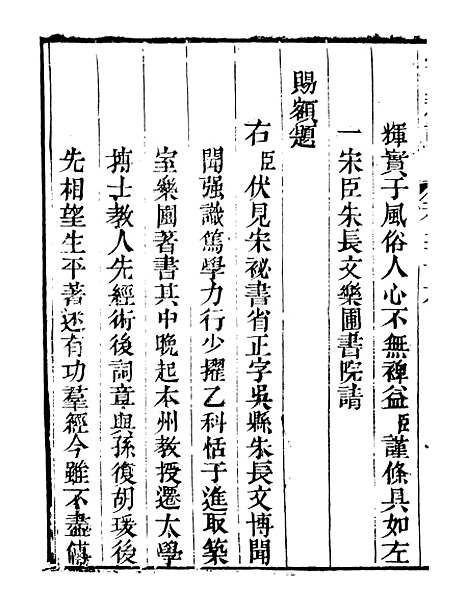 輝實于風俗人心不無裨益臣謹條具如左
一宋臣朱長文樂圃書院請
賜額題
右臣伏見宋祕書省正字吳縣朱長文博聞
聞强識篤學力行少擢乙科恬于進取築
室樂圃著書其中晚起本州教授遷太學
博士教人先經術後詞章與孫復胡瑗後
先相望生平著述有功羣經今雖不盡傳